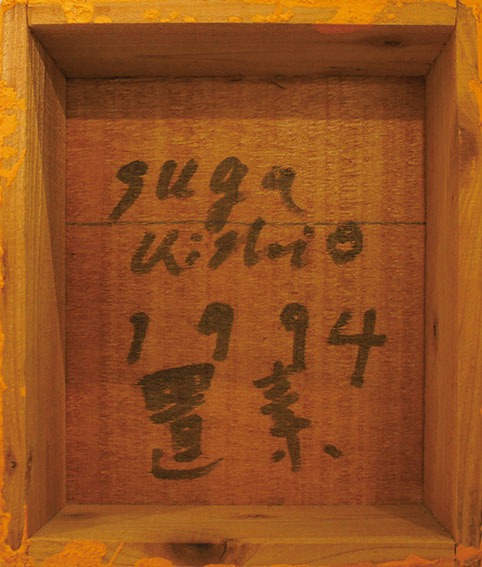 suga
Kishio
1994
置素、